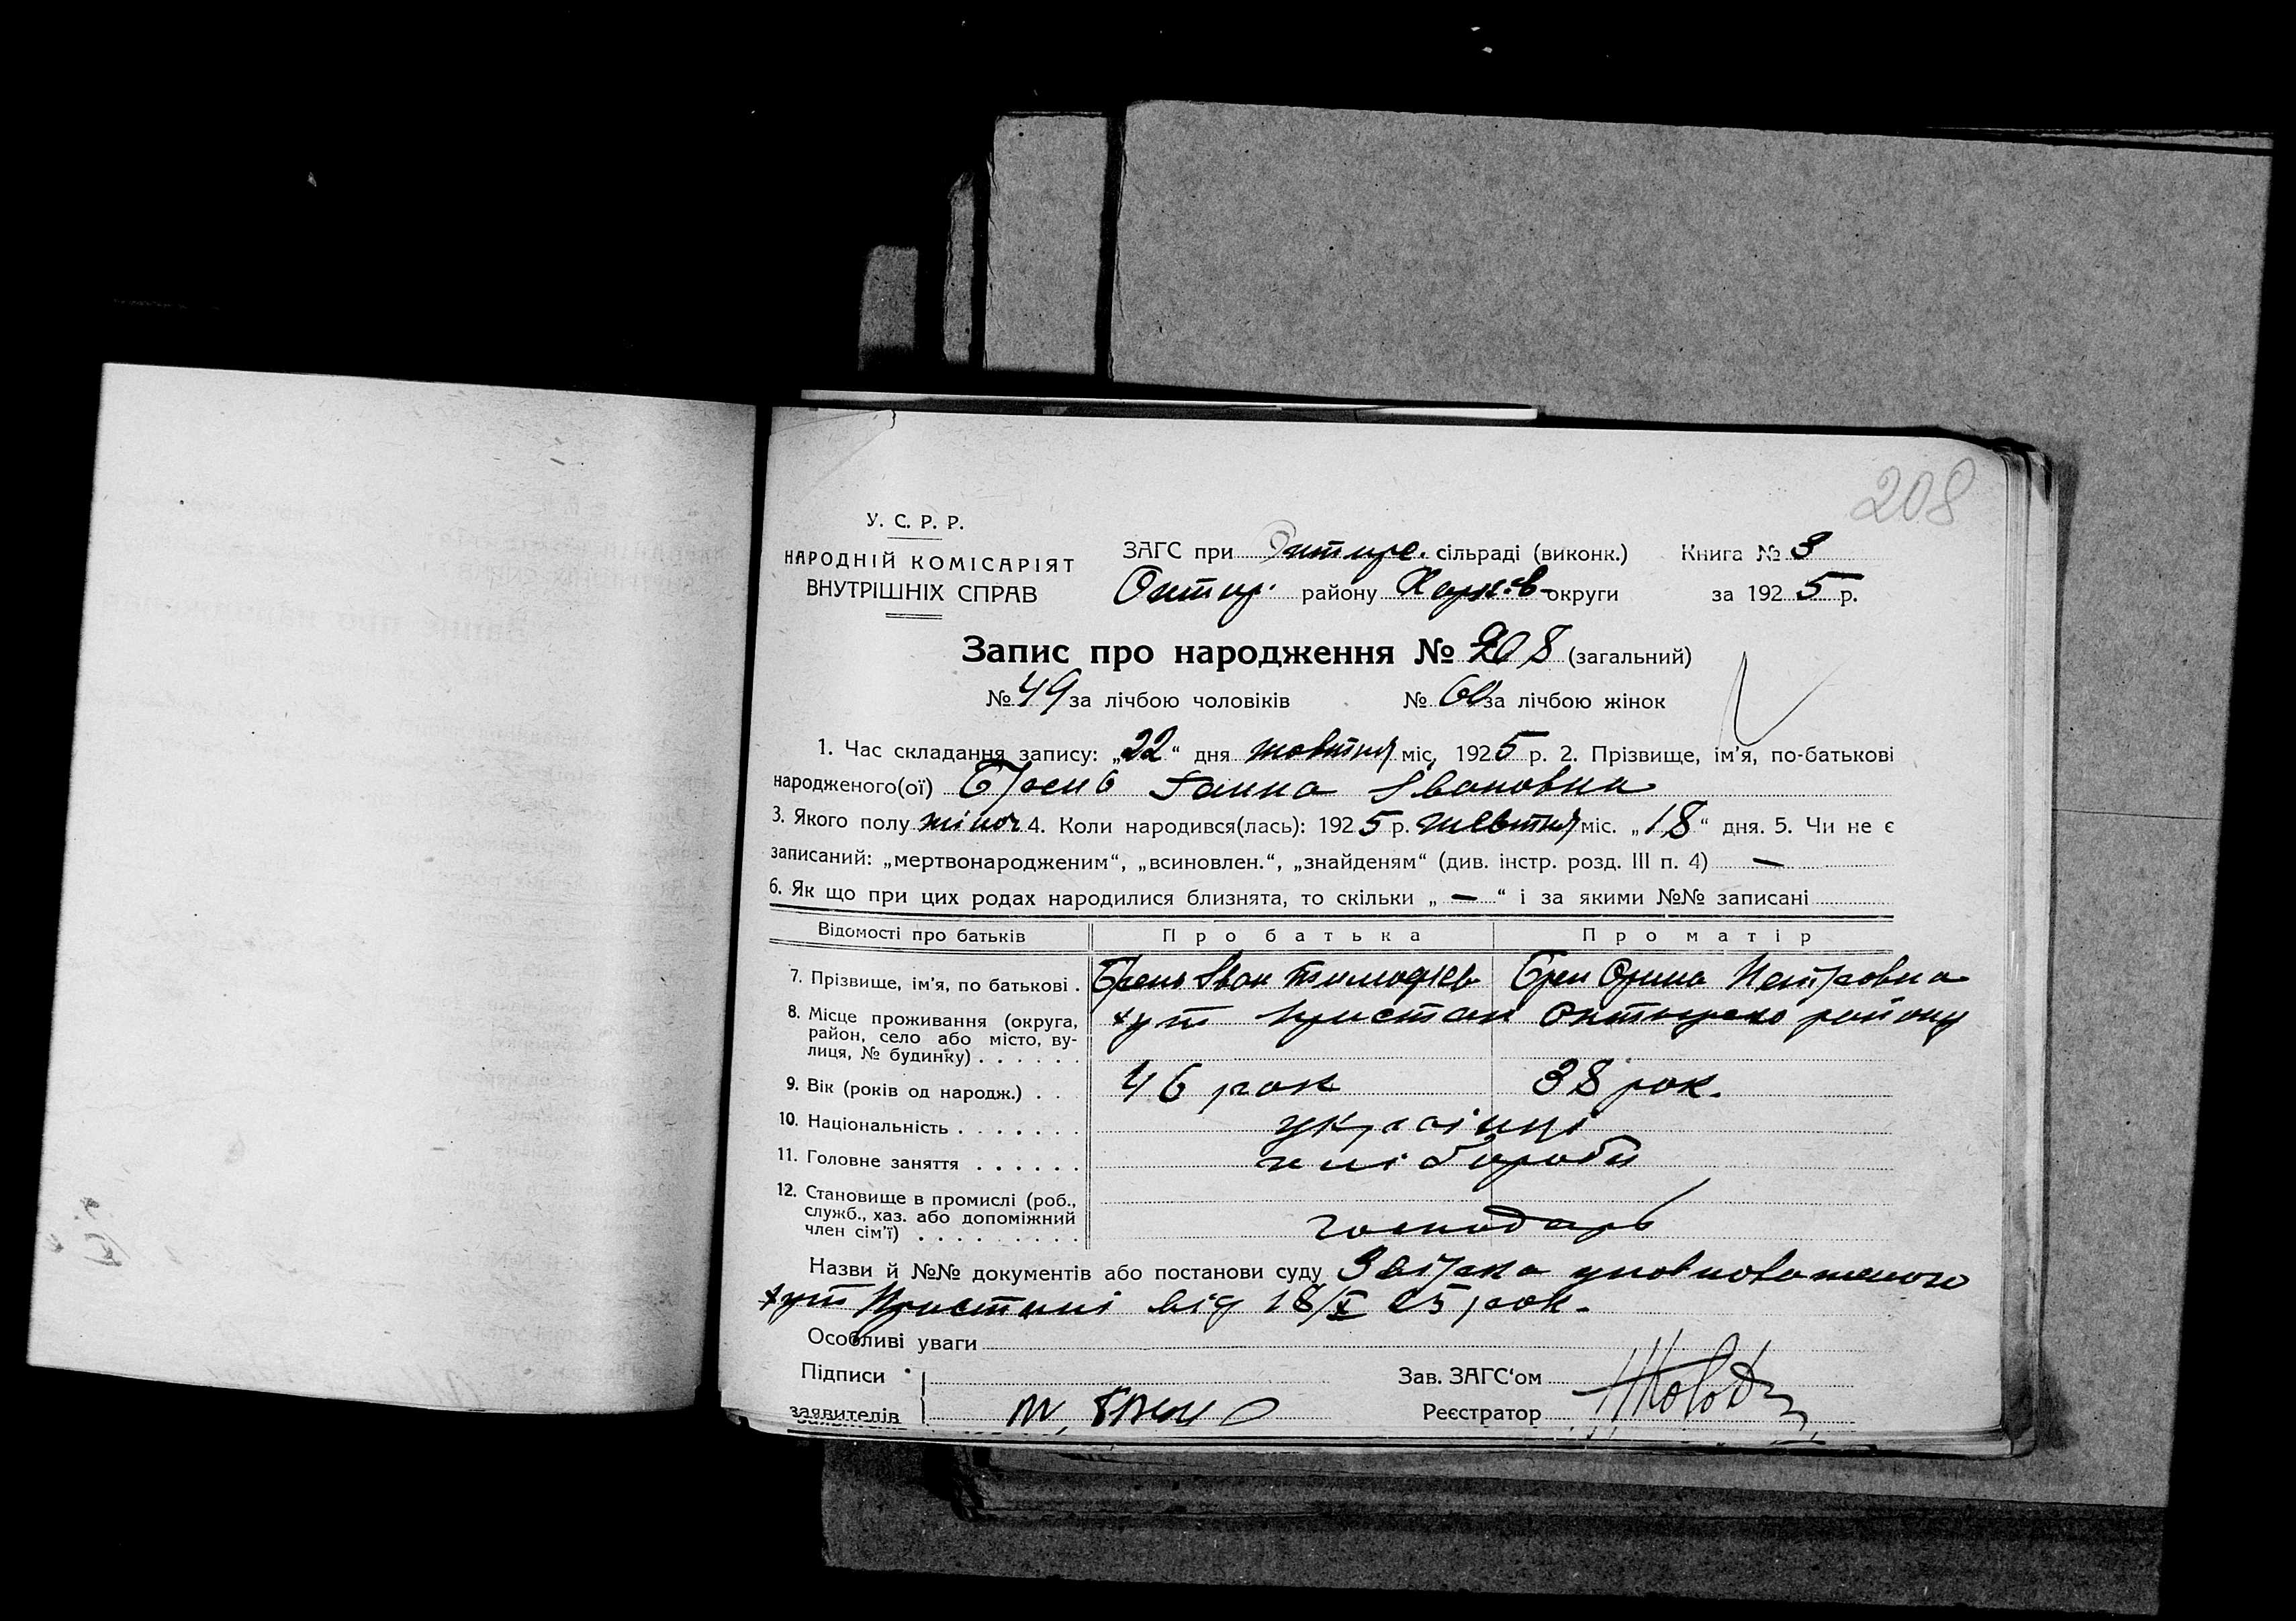 208
У. С. Р. Р.
НАРОДНІЙ КОМІСАРІЯТ
ВНУТРІШНІХ СПРАВ
ЗАГС при сільраді (виконк.) Книга № 3
району Харків округи за 1925 р.
Запис про народження № 208 (загальний)
№ 49 за лічбою чоловіків № за лічбою жінок
1. Час складання запису: „22“ дня жовтня міс, 1925 р. 2. Прізвище, ім'я, по-батькові
народженого(ої) Брень Ганна Івановна
3. Якого полу жіноч 4. Коли народився(лась): 1925 р. жовтня міс. „18“ дня. 5. Чи не є
записаний: „мертвонародженим“, „всиновлен.“, „знайденям“ (див. інстр. розд. III п. 4) —
6. Як що при цих родах народилися близнята, то скільки „ — “ і за якими №№ записані
Відомості про батьків Про батька Про матір
7. Прізвище, ім'я, по батькові . Брень Іван Тимофієв Брен Орина Петровна
8. Місце проживання (округа, хут Пристан району
район, село або місто, ву-
лиця, № будинку) . . . . . .
9. Вік (років од народж.) . . 46 рок 38 рок.
10. Національність . . . . . . . українці
11. Головне заняття . . . . . . хліборобы
12. Становище в промислі (роб.,
служб., хаз. або допоміжний
член сім'ї) . . . . . . . . . господарь
Назви й №№ документів або постанови суду уповноваженого
хут Пристані від 18/X 25 рок.
Особливі уваги
Підписи Зав. ЗАГС'ом
заявителів Реєстратор